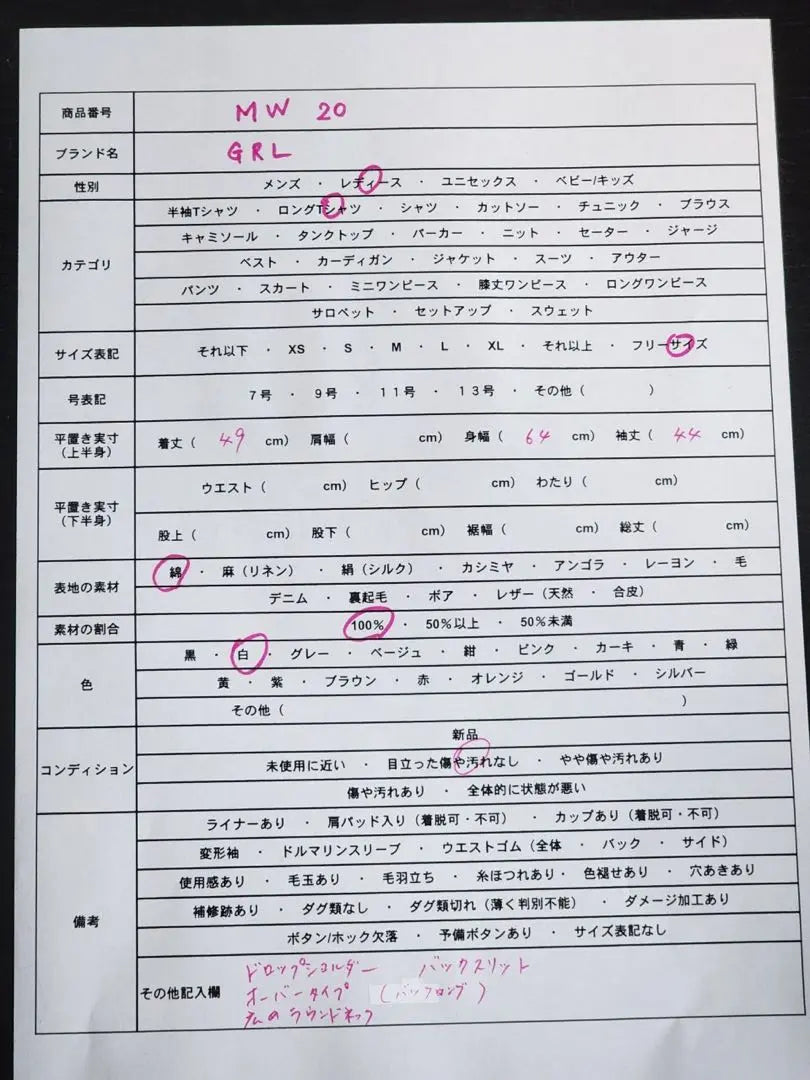 商品番号 MW 20
ブランド名 GRL
性別 メンズ ・ レディース ・ ユニセックス ・ ベビー/キッズ
半袖Tシャツ ・ ロングTシャツ ・ シャツ ・ カットソー ・ チュニック ・ ブラウス
キャミソール ・ タンクトップ ・ パーカー ・ ニット ・ セーター ・ ジャージ
カテゴリ ベスト ・ カーディガン ・ ジャケット ・ スーツ ・ アウター
パンツ ・ スカート ・ ミニワンピース ・ 膝丈ワンピース ・ ロングワンピース
サロペット ・ セットアップ ・ スウェット
サイズ表記 それ以下 ・ XS ・ S ・ M ・ L ・ XL ・ それ以上 ・ フリーサイズ
号表記 7号 ・ 9号 ・ 11号 ・ 13号 ・ その他 ( )
平置き実寸
(上半身) 着丈 ( 49 cm) 肩幅 ( cm) 身幅 ( 64 cm) 袖丈 ( 44 cm)
ウエスト ( cm) ヒップ ( cm) わたり ( cm)
平置き実寸
(下半身)
股上 ( cm) 股下 ( cm) 裾幅 ( cm) 総丈 ( cm)
綿 ・ 麻(リネン) ・ 絹(シルク) ・ カシミヤ ・ アンゴラ ・ レーヨン ・ 毛
表地の素材
デニム ・ 裏起毛 ・ ボア ・ レザー(天然 ・ 合皮)
素材の割合 100% ・ 50%以上 ・ 50%未満
黒 ・ 白 ・ グレー ・ ベージュ ・ 紺 ・ ピンク ・ カーキ ・ 青 ・ 緑
色 黄 ・ 紫 ・ ブラウン ・ 赤 ・ オレンジ ・ ゴールド ・ シルバー
その他 ( )
新品
コンディション 未使用に近い ・ 目立った傷や汚れなし ・ やや傷や汚れあり
傷や汚れあり ・ 全体的に状態が悪い
ライナーあり ・ 肩パッド入り(着脱可・不可) ・ カップあり(着脱可・不可)
変形袖 ・ ドルマリンスリーブ ・ ウエストゴム(全体 ・ バック ・ サイド)
使用感あり ・ 毛玉あり ・ 毛羽立ち ・ 糸ほつれあり・ 色褪せあり ・ 穴あきあり
備考 補修跡あり ・ ダグ類なし ・ ダグ類切れ(薄く判別不能) ・ ダメージ加工あり
ボタン/ホック欠落 ・ 予備ボタンあり ・ サイズ表記なし
ドロップショルダー バックスリット
その他記入欄 オーバータイプ (バックロング)
広めラウンドネック